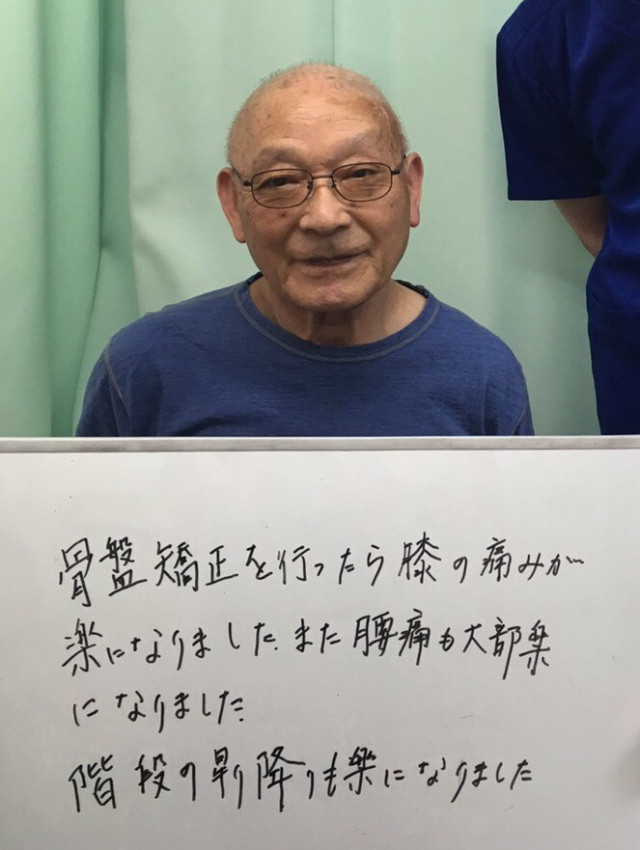 骨盤矯正を行ったら膝の痛みが
楽になりました。また腰痛も大部楽
になりました。
階段の昇り降りも楽になりました